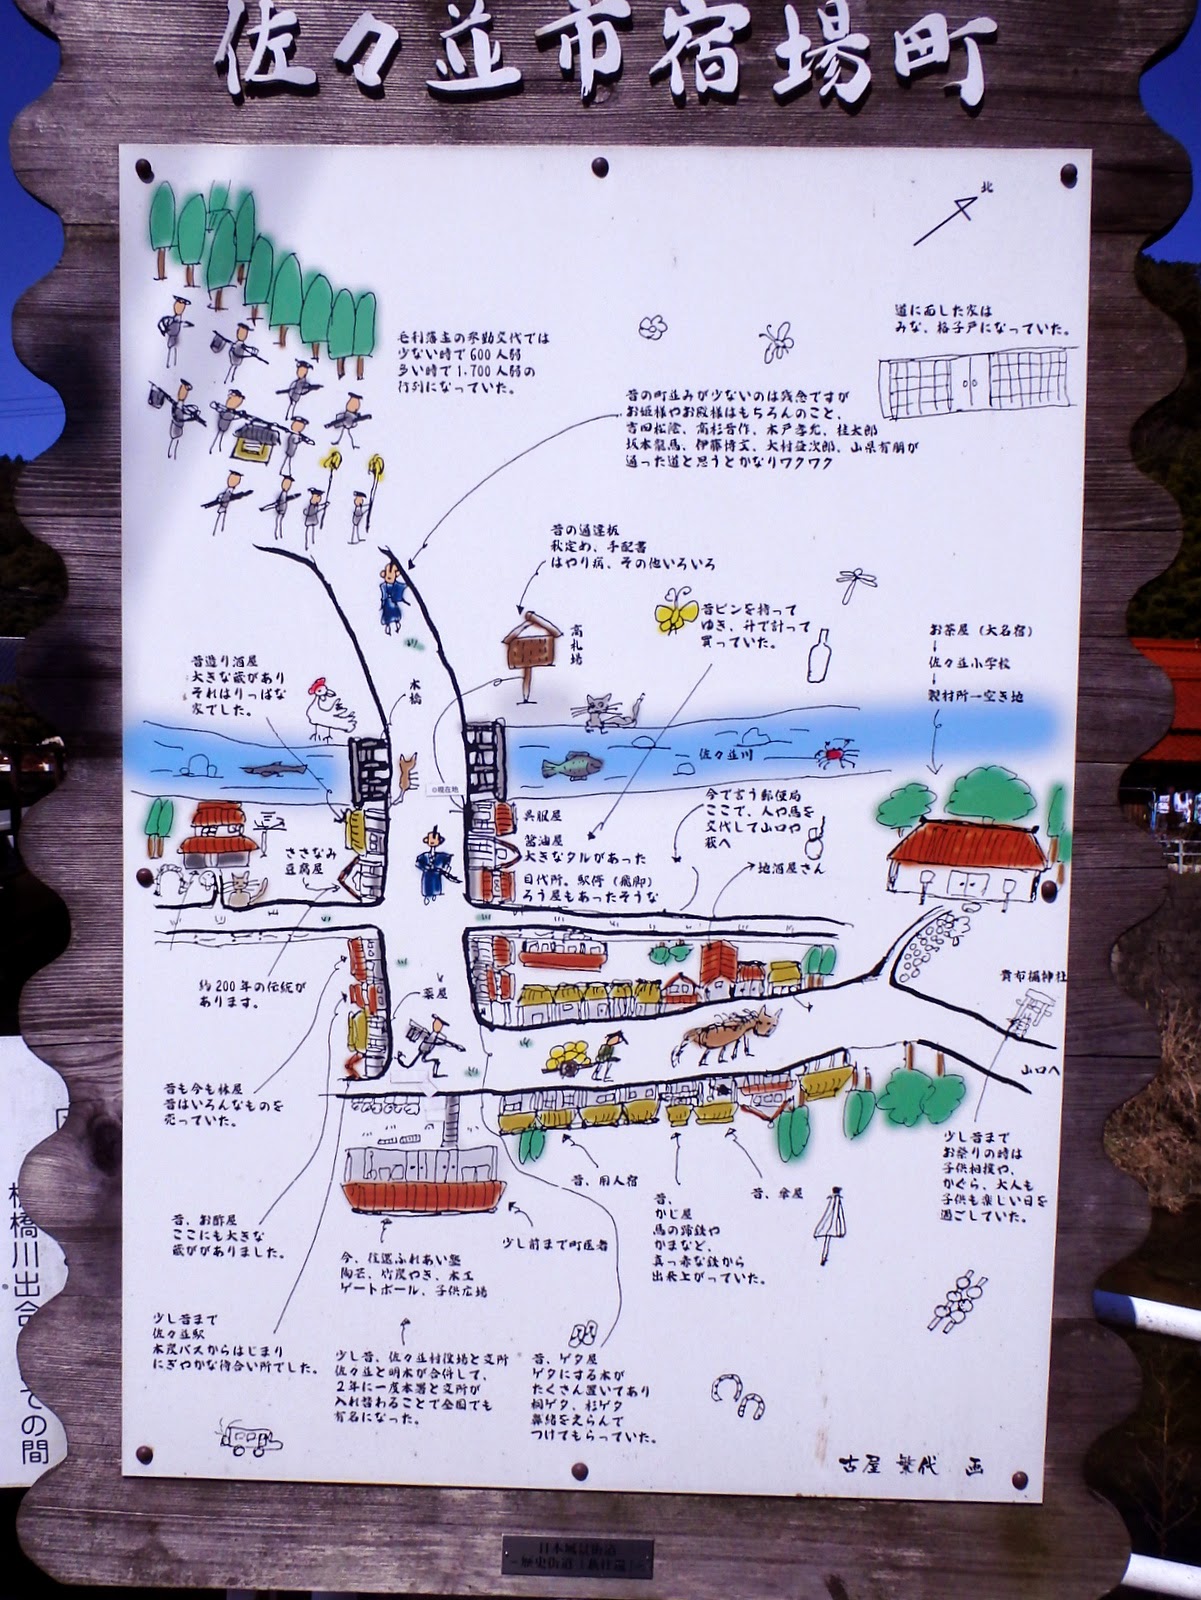 佐々並市宿場町
北
道に面した家は
みな、格子戸になっていた。
毛利藩主の参勤交代では
少ない時で600人弱
多い時で1,700人弱の
行列になっていた。
昔の町並みが少ないのは残念ですが
お姫様やお殿様はもちろんのこと、
吉田松陰、高杉晋作、木戸孝允、桂太郎
坂本龍馬、伊藤博文、大村益次郎、山県有朋が
通った道と思うとかなりワクワク
昔の通達板
秋定め、手配書
はやり病、その他いろいろ
高札場
昔ビンを持って
ゆき、升で計って
買っていた。
お茶屋（大名宿）
佐々並小学校
製材所→空き地
昔造り酒屋
大きな蔵があり
それはりっぱな
家でした。
木橋
佐々並川
⊙現在地
呉服屋
醤油屋
大きなタルがあった
目代所。駅停（飛脚）
ろう屋もあったそうな
今で言う郵便局
ここで、人や馬を
交代して山口や
萩へ
地酒屋さん
ささなみ
豆腐屋
約200年の伝統が
あります。
薬屋
貴布禰神社
山口へ
昔も今も林屋
昔はいろんなものを
売っていた。
少し昔まで
お祭りの時は
子供相撲や、
かぐら、大人も
子供も楽しい日を
過ごしていた。
昔、用人宿
昔、傘屋
昔、
かじ屋
馬の蹄鉄や
かまなど、
真っ赤な鉄から
出来上がっていた。
昔、お酢屋
ここにも大きな
蔵ががありました。
少し前まで町医者
今、往還ふれあい塾
陶芸、竹炭やき、木工
ゲートボール、子供広場
少し昔まで
佐々並駅
木炭バスからはじまり
にぎやかな待合い所でした。
少し昔、佐々並村役場と支所
佐々並と明木が合併して、
2年に一度本署と支所が
入れ替わることで全国でも
有名になった。
昔、ゲタ屋
ゲタにする木が
たくさん置いてあり
桐ゲタ、杉ゲタ
鼻緒をえらんで
つけてもらっていた。
古屋 繁代 画
日本風景街道
橋川出合
の間